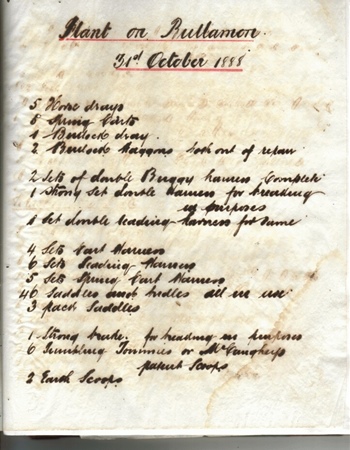 Plant on Bullamon.
31st October 1888
5 Horse drays
5 Spring Carts
1 Bullock dray.
2 Bullock Waggons both out of repair
2 Sets of double Buggy harness Complete
1 Strong Set double harness for breaking
in purposes
1 Set double leading harness for same
4 Sets Cart Harness
6 Sets Leading Harness
5 Sets Spring Cart Harness
46 Saddles and bridles all in use
3 pack Saddles
1 Strong brake for breaking in purposes
6 Tumbling Tommies or McCaugheys
patent Scoops
2 Earth Scoops